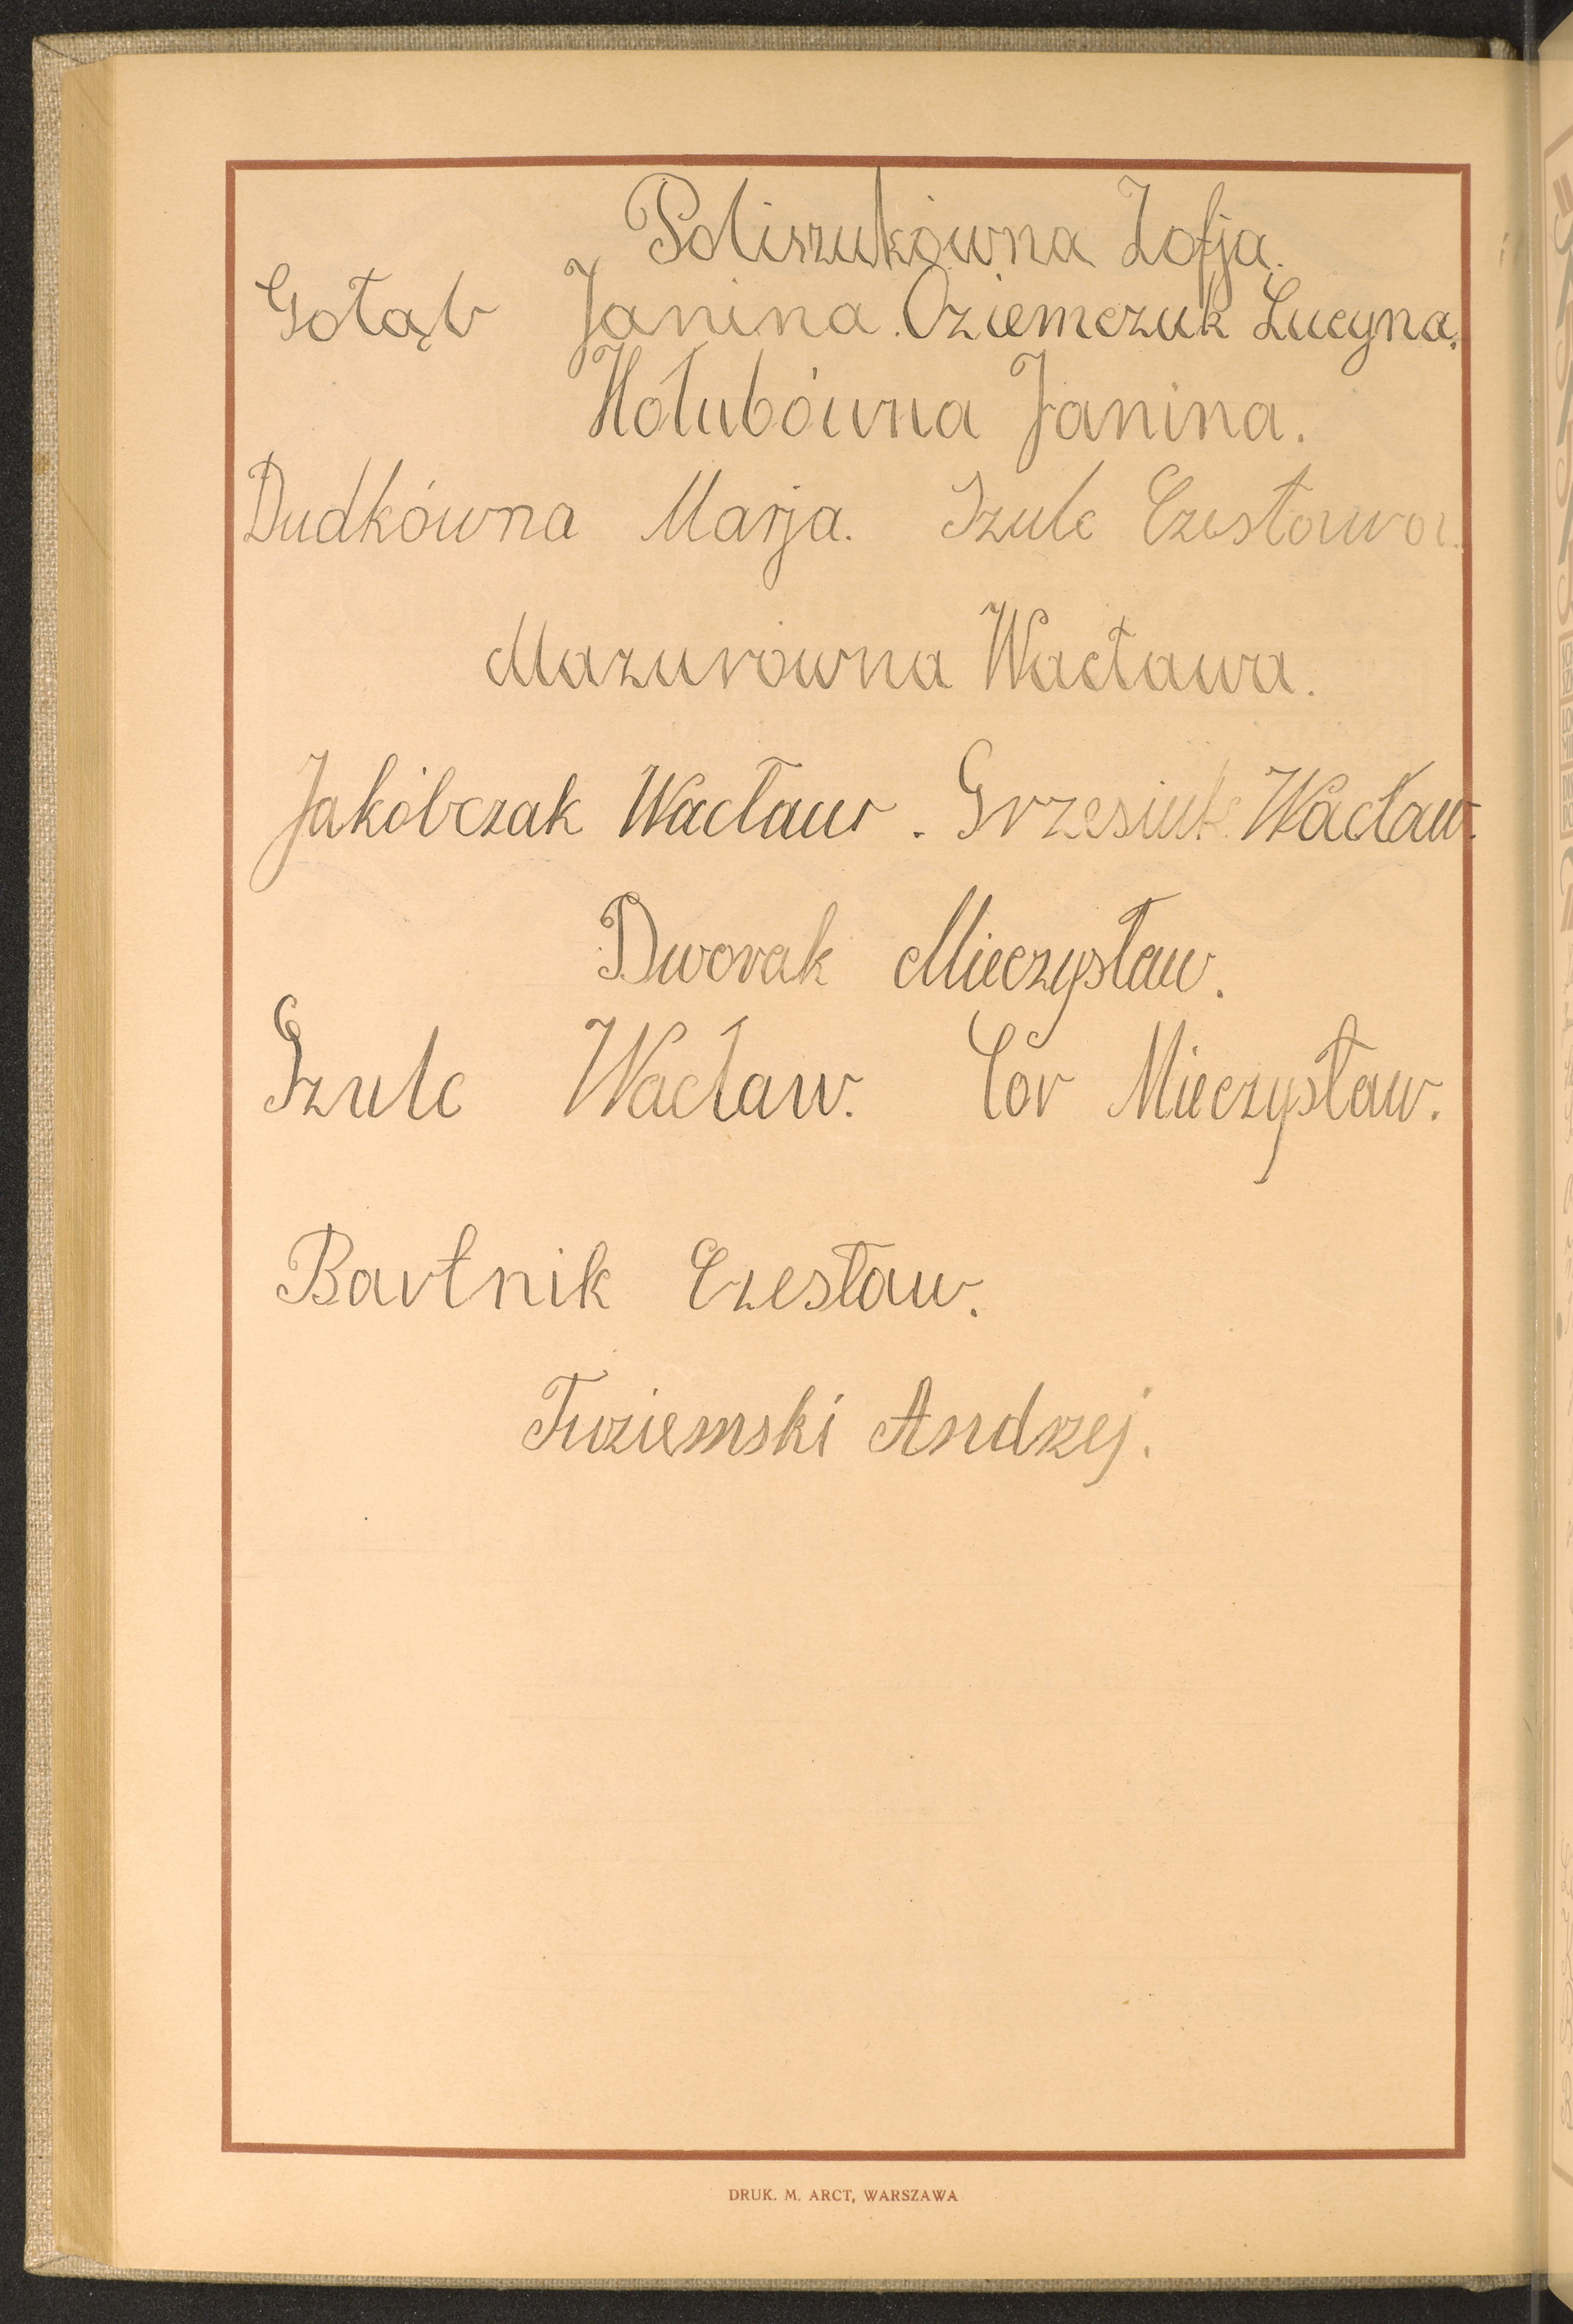 Poliszukówna Zofja.
Gołąb Janina. Oziemczuk Lucyna.
Hołubówna Janina.
Dudkówna Marja. Szulc Czesława.
Mazurówna Wacława.
Jakóbczak Wacław. Grzesiuk Wacław.
Dworak Mieczysław.
Szulc Wacław. Cór Mieczysław.
Bartnik Czesław.
Tuziemski Andrzej.
DRUK. M. ARCT, WARSZAWA